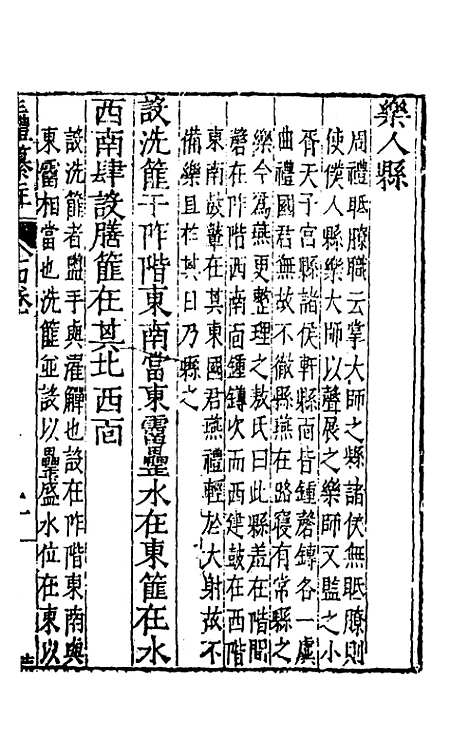 樂人縣
周禮眂瞭職云掌大師之縣諸侯無眂瞭則
使僕人縣樂大師以聲展之樂師又監之小
胥天子宮縣諸侯軒縣面皆鍾磬鏄各一虡
曲禮國君無故不徹縣燕在路寢有常縣之
樂今爲燕更整理之敖氏曰此縣盖在階間
磬在阼階西南面鍾鏄次而西建鼓在西階
東南鼓鼙在其東國君燕禮輕於大射故不
備樂且於其日乃縣之
設洗篚于阼階東南當東霤罍水在東篚在水
西南肆設膳篚在其北西面
設洗篚者盥手與濯觶也設在阼階東南與
東霤相當也洗篚並設以罍盛水位在東以